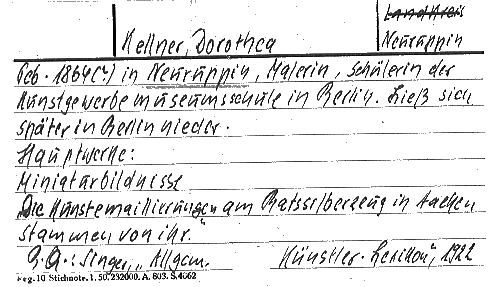 Landkreis
Kellner, Dorothea Neuruppin
Geb. 1864(?) in Neuruppin, Malerin, Schülerin der
Kunstgewerbemuseumsschule in Berlin. Ließ sich
später in Berlin nieder.
Hauptwerke:
Miniaturbildnisse
"Die Kunstemaillierungen am Ratssilberzeug in Aachen
stammen von ihr."
Q.A.: Singer, "Allgem. Künstler-Lexikon", 1922
Reg. 10 Stichnotr. 1. 50. 232000. A. 803. S. 4662